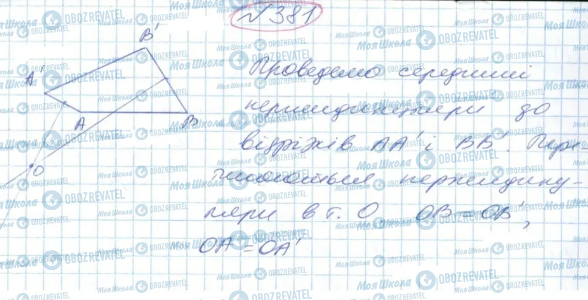 №381
B'
A'
A
B
O
Проведемо серединні
перпендикуляри до
відрізків AA' і BB'. Пере-
тинаються перпендику-
ляри в т. О. OB = OB',
OA = OA'
Моя Школа
OBOZREVATEL